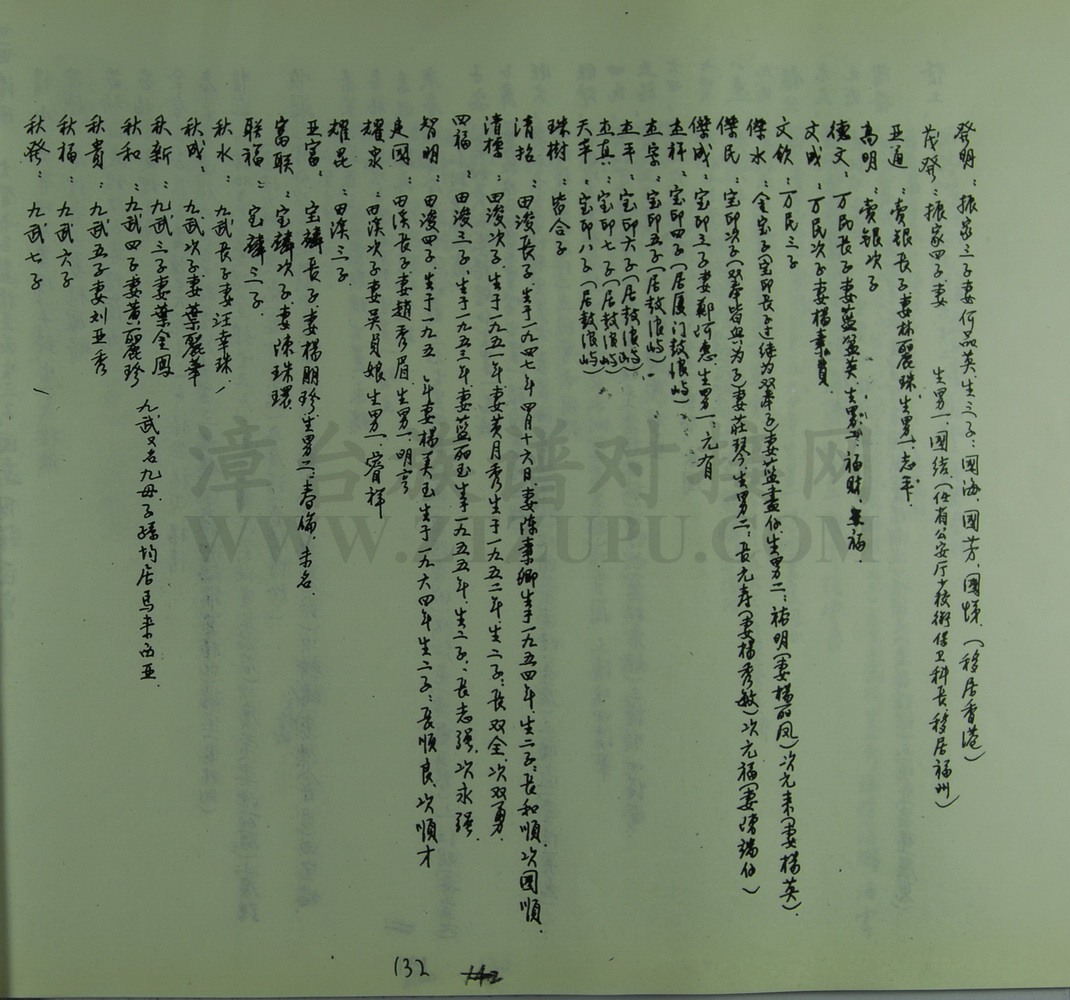 登明：振家三子妻何品英，生三子：國海，國芳，國悌，（移居香港）
茂發：振家四子妻 生男一，國統（任省公安厅少校衔保卫科長移居福州）
亚通：賣银長子，妻林麗珠，生男一，志平
高明：賣银次子
德文：万民長子，妻蓝盆英，生男二，福財，福
文成：万民次子妻楊素貞
文欽：万民三子
傑水：金宝子（宝印長子过继为双奉子）妻蓝盡仔，生男二：祐明（妻楊丽凤）次元来（妻楊英）
傑民：宝印次子（双奉皆與为子）妻莊琴，生男二：長元寿（妻楊秀敏）次元福（妻陳端仔）
傑成：宝印三子妻鄭阿惠，生男一：元有
志杆：宝印四子（居厦门鼓浪屿）
志宗：宝印五子（居鼓浪屿）
志平：宝印六子（居鼓浪屿）
志真：宝印七子（居鼓浪屿）
天苹：宝印八子（居鼓浪屿）
珠樹：皆合子
清招：田浚長子，生于一九四七年四月十六日，妻陈素卿生于一九五四年，生二子：長和順，次國順
清標：田浚次子，生于一九五一年，妻黄月秀生于一九五二年，生二子：長双全，次双勇
四福：田浚三子，生于一九五三年妻蓝丽玉生于一九五五年，生二子：長志强，次永强
智明：田浚四子，生于一九五 年妻楊美玉生于一九六四年生二子：長順良，次順才
建國：田溪長子妻趙秀眉，生男一，明
耀泉：田溪次子妻吴貞娘生男一，睿祥
耀昆：田溪三子
亚富：宝麟長子，妻楊朋珍生男二，春倫，未名
富联：宝麟次子，妻陳珠環
联福：宝麟三子
秋水：九武長子妻汪幸珠
秋成：九武次子妻葉麗華
秋新：九武三子妻葉金鳳
秋和：九武四子妻黄麗珍 九武又名九毋，子孫均居馬来西亚
秋貴：九武五子妻刘亚秀
秋福：九武六子
秋發：九武七子
132
142
漳台族谱对接网
WWW.ZTZUPU.COM